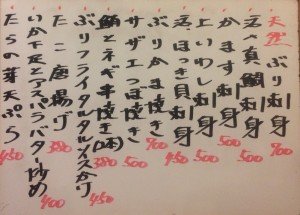 天然 ぶり刺身 700
活〆真鯛刺身 500
かます刺身 500
上いわし刺身 450
活ほっき貝刺身 500
ぶりかま焼き 700
サザエつぼ焼き 500
ネギ串焼き 380
ぶりフライタルタルソースがけ 450
たこ唐揚げ 380
いか下足とアスパラバター炒め 400
たらの芽天ぷら 450